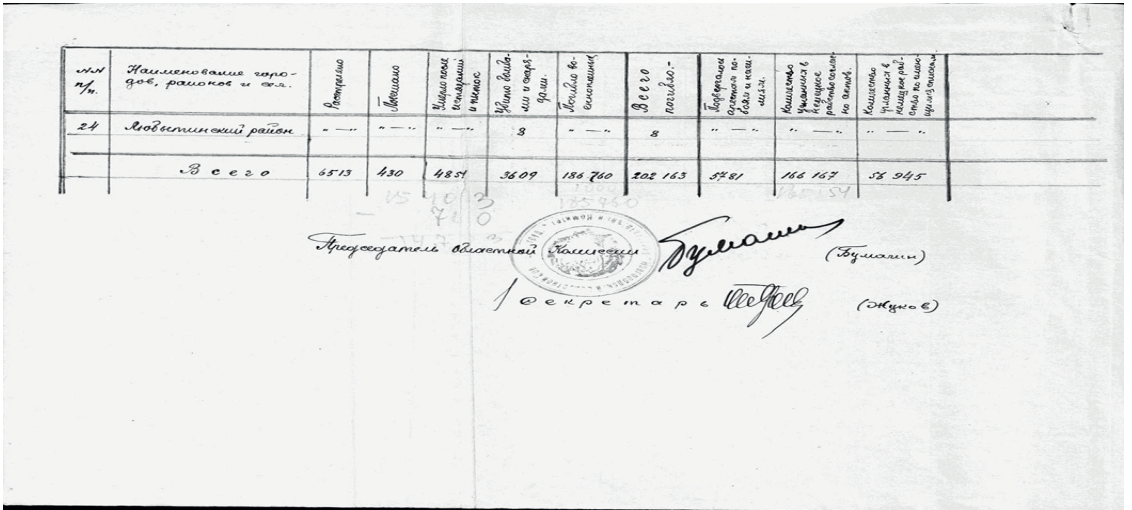 NN п/п.
Наименование горо-
дов, районов и сел.
Расстреляно
Повешено
Умерло после
истязаний
и пыток
Убито бомба-
ми и снаря-
дами.
Погибло во-
еннопленных
Всего
погибло.-
Подвергалось
арестам по-
боям и наси-
лиям.
Количество
угнанных в
немецкое
рабство соглас-
но актов.
Количество
угнанных в
немецкое раб-
ство по
24 Любытинский район " — " " — " " — " 8 " — " 8 " — " " — " " — "
Всего 6513 430 4851 3609 186 760 202 163 5781 166 167 56 945
Председатель областной Комиссии (Бумагин)
Секретарь (Жуков)